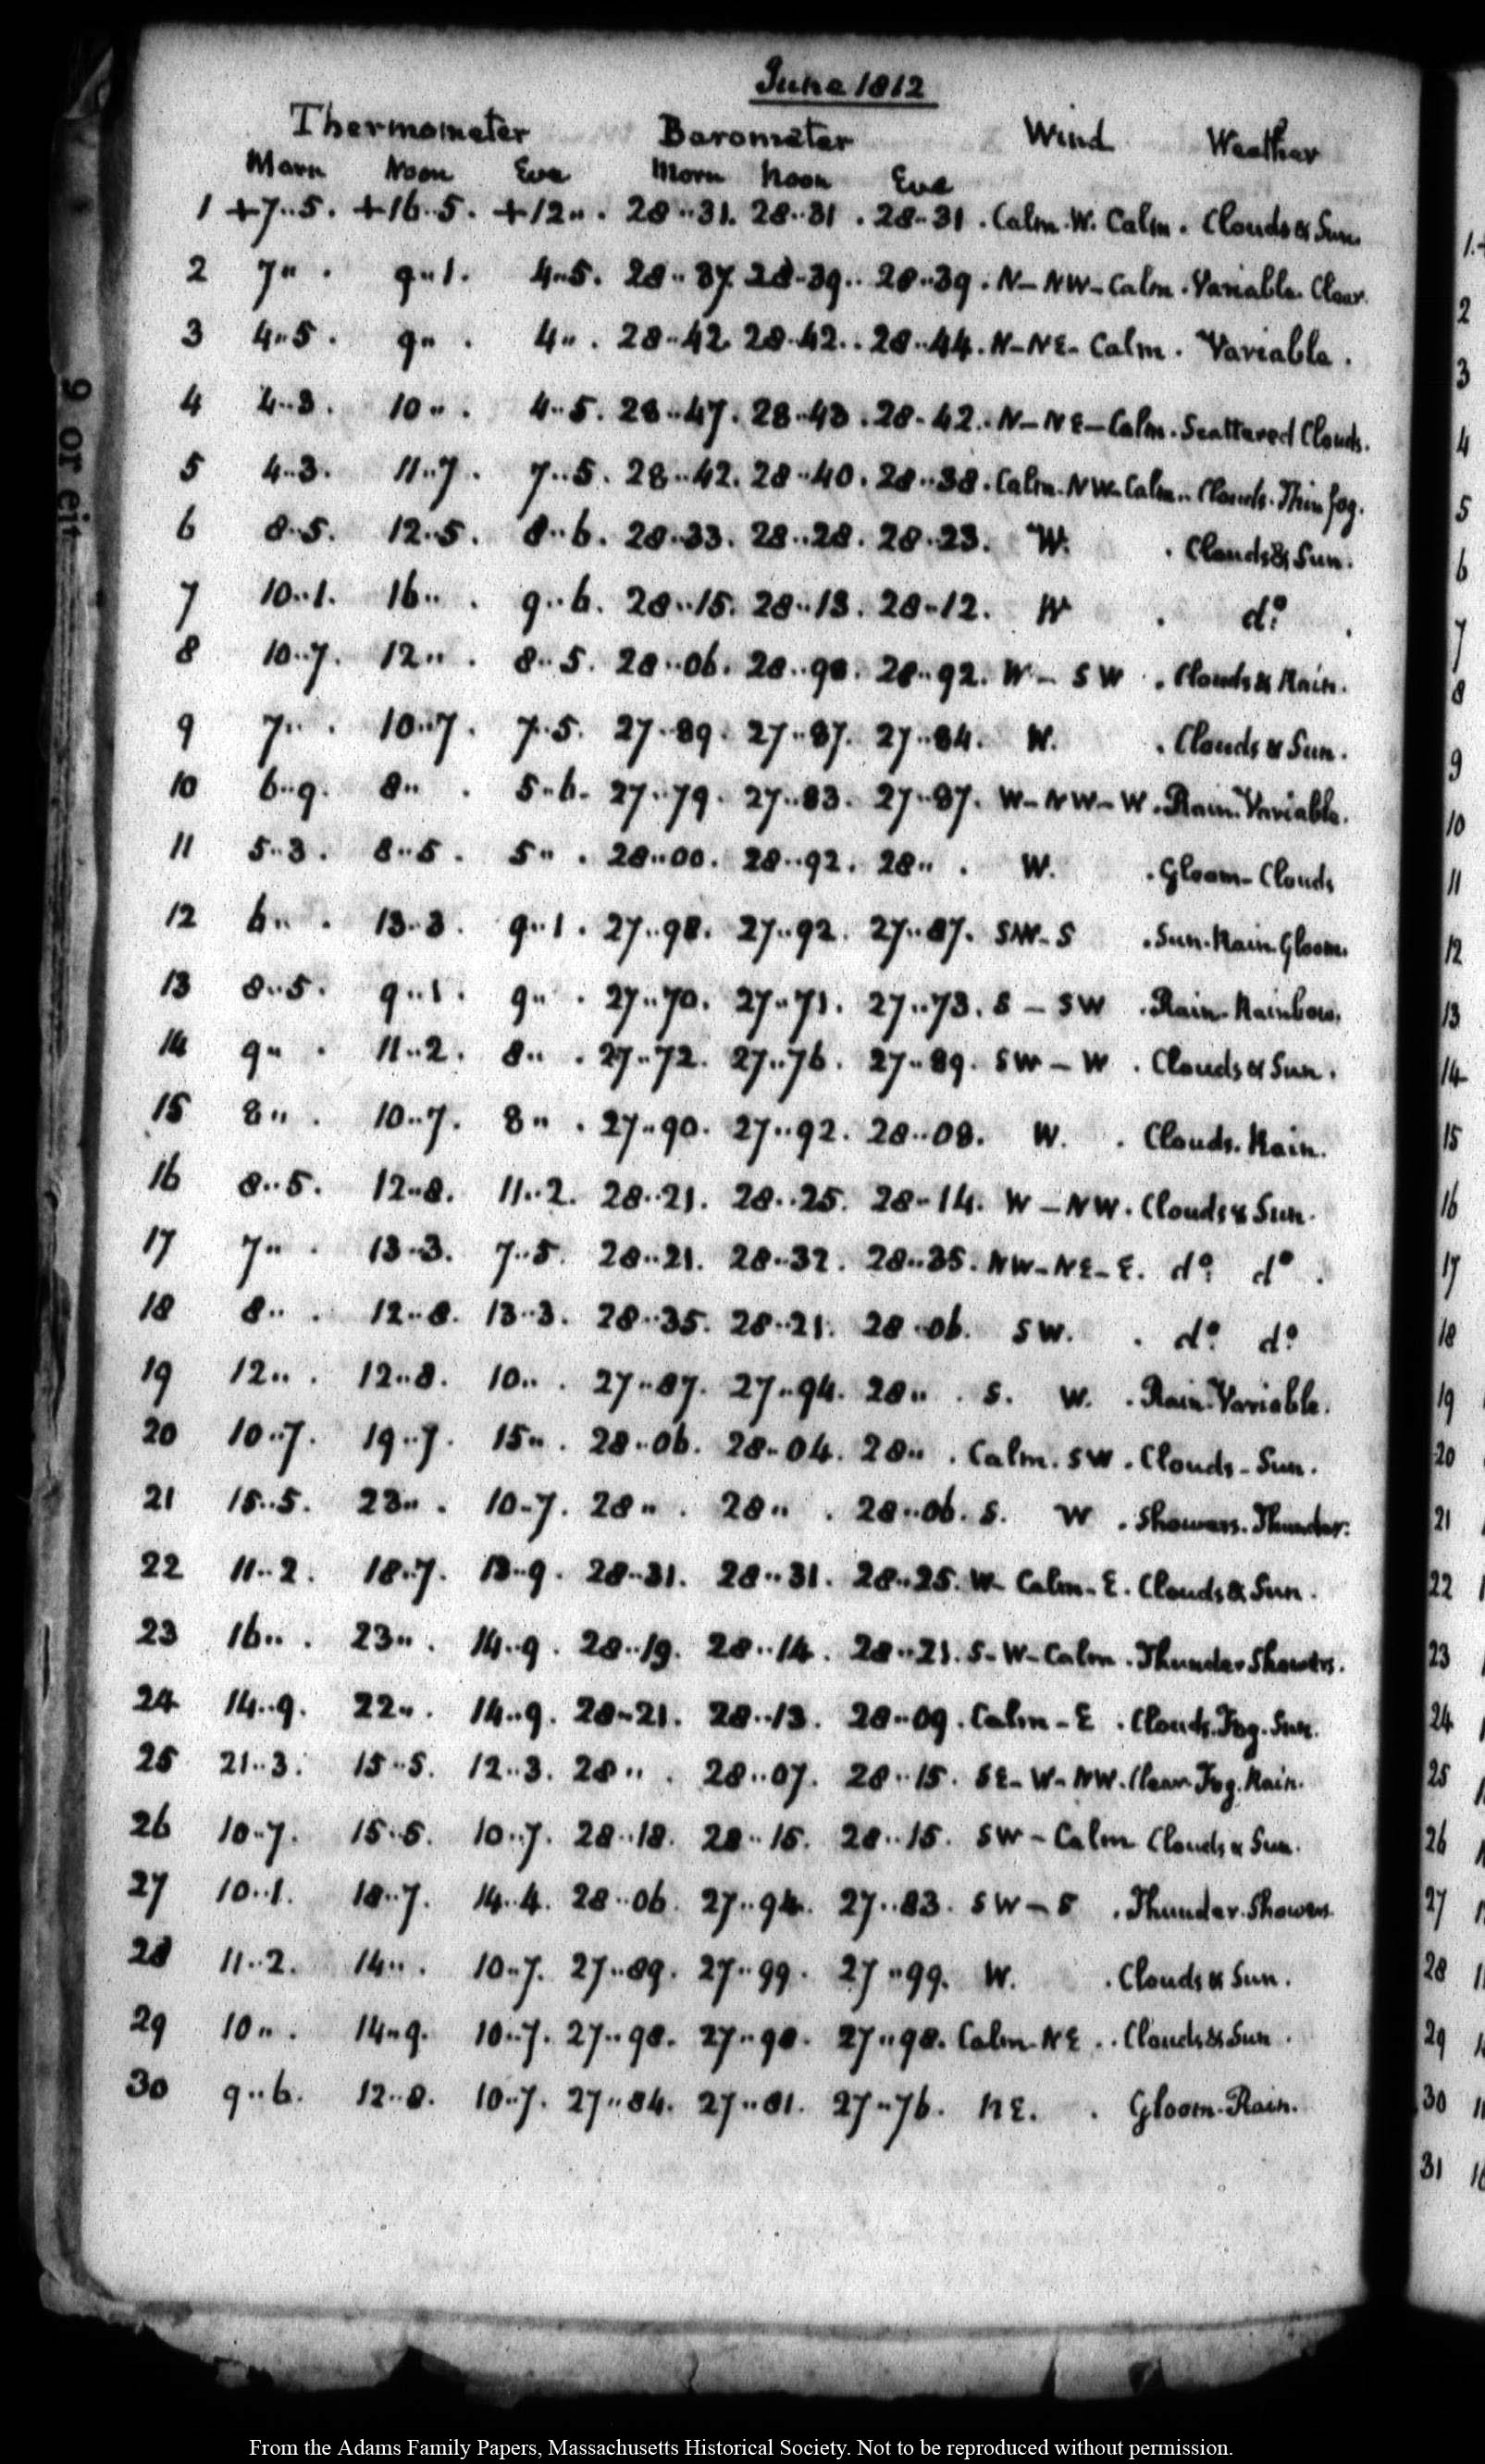 June 1812
Thermometer Barometer Wind Weather
Morn Noon Eve Morn Noon Eve
1 +7..5. +16..5. +12.. . 28..31. 28..31. 28..31. Calm. W. Calm. Clouds & Sun.
2 7.. . 9..1. 4..5. 28..37. 28..39.. 28..39. N—NW—Calm. Variable. Clear.
3 4..5. 9.. . 4.. . 28..42. 28..42.. 28..44. N—NE—Calm. Variable.
4 4..3. 10.. . 4..5. 28..47. 28..43. 28..42.. N—NE—Calm. Scattered Clouds.
5 4..3. 11..7. 7..5. 28..42. 28..40. 28..38. Calm. NW—Calm.. Clouds. Thin fog.
6 8..5. 12..5. 8..6. 28..33. 28..28. 28..23. W. . Clouds & Sun.
7 10..1. 16.. . 9..6. 28..15. 28..13. 28..12. W . do.
8 10..7. 12.. . 8..5. 28..06. 28..98. 28..92. W— SW . Clouds & Rain.
9 7.. . 10..7. 7..5. 27..89. 27..87. 27..84. W. . Clouds & Sun.
10 6..9. 8.. . 5..6. 27..79. 27..83. 27..87. W—NW—W. Rain. Variable.
11 5..3. 8..5. 5.. . 28..00. 28..92. 28.. . W. . Gloom—Clouds
12 6.. . 13..3. 9..1. 27..98. 27..92. 27..87. SW—S . Sun. Rain. Gloom.
13 8..5. 9..1. 9.. . 27..70. 27..71. 27..73. S — SW . Rain. Rainbow.
14 9.. . 11..2. 8.. . 27..72. 27..76. 27..89. SW — W . Clouds & Sun.
15 8.. . 10..7. 8.. . 27..90. 27..92. 28..08. W. . Clouds. Rain.
16 8..5. 12..8. 11..2. 28..21. 28..25. 28..14. W —NW. Clouds & Sun.
17 7.. . 13..3. 7..5. 28..21. 28..32. 28..35. NW—NE—E. do. do.
18 8.. . 12..8. 13..3. 28..35. 28..21. 28..06. SW. . do. do.
19 12.. . 12..8. 10.. . 27..87. 27..94. 28.. . S. W. . Rain. Variable.
20 10..7. 19..7. 15.. . 28..06. 28..04. 28.. . Calm. SW. Clouds—Sun.
21 15..5. 23.. . 10..7. 28.. . 28.. . 28..06. S. W . Showers. Thunder.
22 11..2. 18..7. 13..9. 28..31. 28..31. 28..25. W— Calm—E. Clouds & Sun.
23 16.. . 23.. . 14..9. 28..19. 28..14. 28..21. S—W—Calm. Thunder Showers.
24 14..9. 22.. . 14..9. 28..21. 28..13. 28..09. Calm—E . Clouds. Fog. Sun.
25 21..3. 15..5. 12..3. 28.. . 28..07. 28..15. SE—W—NW. Clear. Fog. Rain.
26 10..7. 15..5. 10..7. 28..18. 28..15. 28..15. SW—Calm Clouds & Sun.
27 10..1. 18..7. 14..4. 28..06. 27..94. 27..83. SW—S . Thunder. Showers.
28 11..2. 14.. . 10..7. 27..89. 27..99. 27..99. W. . Clouds & Sun.
29 10.. . 14..9. 10..7. 27..98. 27..98. 27..98. Calm. NE . . Clouds & Sun.
30 9..6. 12..8. 10..7. 27..84. 27..81. 27..76. NE. . Gloom. Rain.
1.
2
3
4
5
6
7
8
9
10
11
12
13
14
15
16
17
18
19
20
21
22
23
24
25
26
27
28
29
30
31
From the Adams Family Papers, Massachusetts Historical Society. Not to be reproduced without permission.